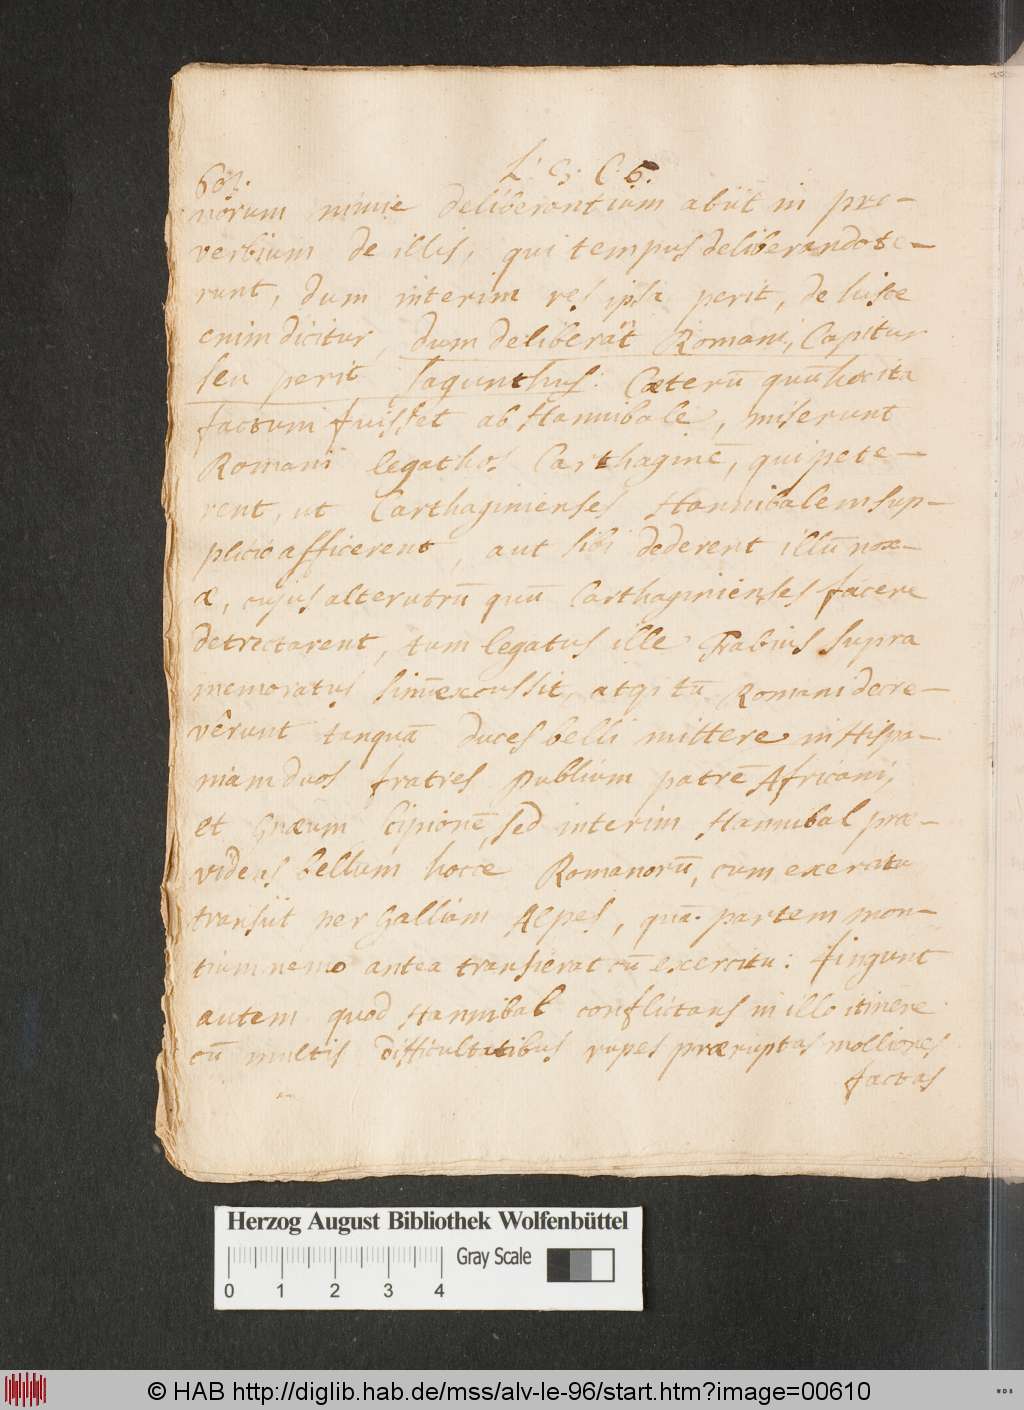 L. 3. C. 6.
norum nimie deliberantium abiit in pro-
verbium de illis, qui tempus deliberando te-
runt, dum interim res ipsa perit, de hisce
enim dicitur, dum deliberãt Romani, Capitur
seu perit Sagunthus. Cæterũ quũ hæc ita
factum fuisset ab Hannibale, miserunt
Romani legathos Carthaginẽ, qui pete-
rent, ut Carthaginienses Hannibalem sup-
plicio afficerent, aut sibi dederent illũ nox-
æ, cujus alterutrũ quũ Carthaginienses facere
detrectarent, tum legatus ille Fabius supra
memoratus sinũ excussit, atqi tũ Romani decre-
vêrunt tanquã duces belli mittere in Hispa-
niam duos fratres Publium patrẽ Africani,
et Gnæum Cipionẽ, sed interim Hannibal præ-
videns bellum hocce Romanorũ, cum exercitu
transiit per Galliam Alpes, quã partem mon-
tium nemo antea transierat cũ exercitu: fingunt
autem quod Hannibal conflictans in illo itinere
cũ multis difficultatibus rupes præruptas molliores
factas
Herzog August Bibliothek Wolfenbüttel
Gray Scale
0 1 2 3 4
© HAB http://diglib.hab.de/mss/alv-le-96/start.htm?image=00610